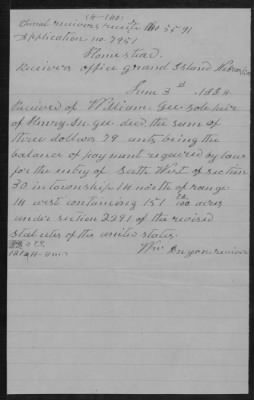 (4-140)
Final receivers receipt No 3571
Application no. 7951
Homestead.
Receivers office Grand Island Nebraska
June 3rd 1884
Received of William Gee sole heir
of Henry In gee died the sum of
three dollars 79 cents being the
balance of payment required by law
for the entry of South West of section
30 in township 14 north of range
14 west containing 151 acres
under section 2291 of the revised
statutes of the united states.
Wm Anyan receiver